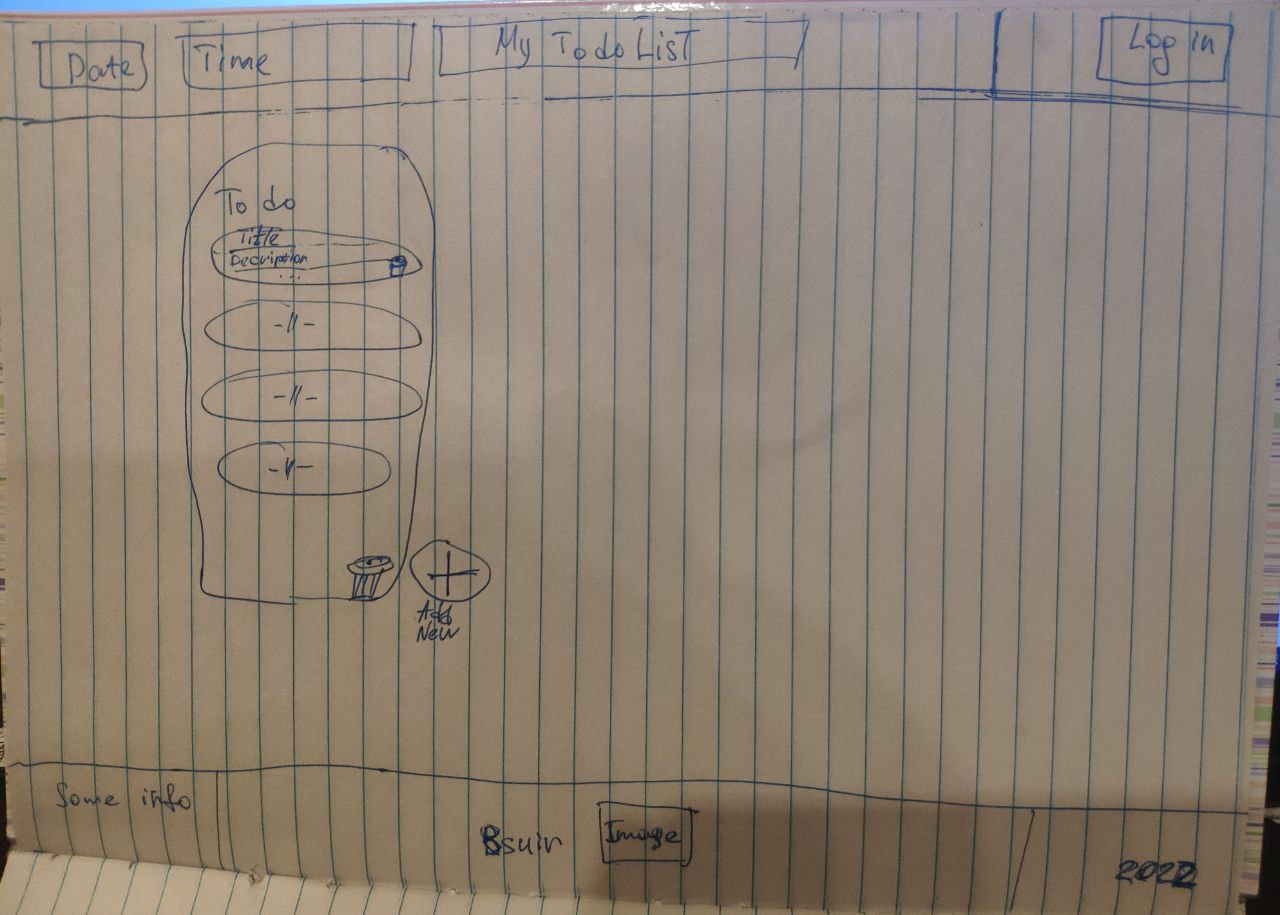 Date
Time
My To do List
Log in
To do
Title
Decription
...
-//-
-//-
-//-
Add
New
Some info
Bsuir
Image
2022